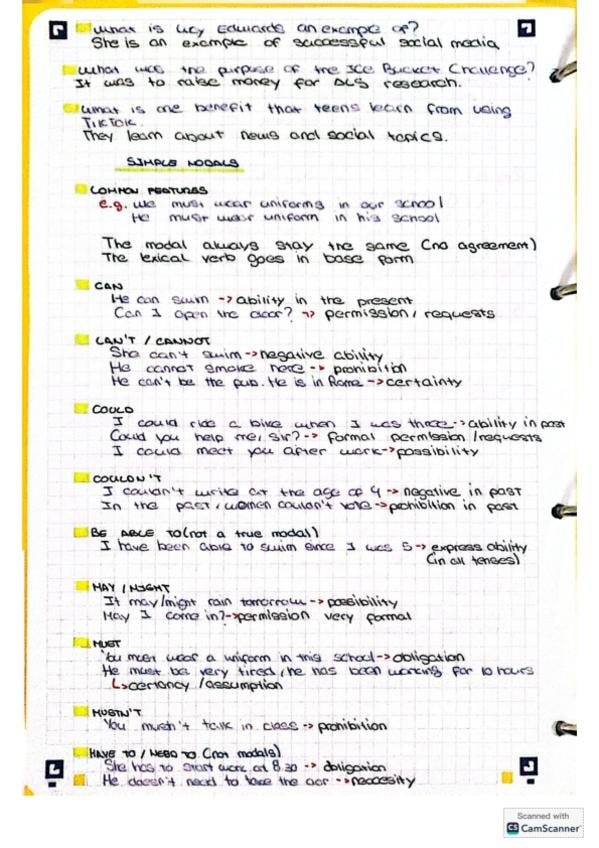 What is Lucy Edwards an example of?
She is an example of successful social media
What was the purpose of the Ice Bucket Challenge?
It was to raise money for ALS research.
What is one benefit that teens learn from using
TikTok.
They learn about news and social topics.
SIMPLE MODALS
COMMON FEATURES
e.g. we must wear uniforms in our school
He must wear uniform in his school
The modal always stay the same (no agreement)
The lexical verb goes in base form
CAN
He can swim -> ability in the present
Can I open the door? -> permission / requests
CAN'T / CANNOT
She can't swim -> negative ability
He cannot smoke here -> prohibition
He can't be the pub. He is in Rome -> certainty
COULD
I could ride a bike when I was three -> ability in past
Could you help me, sir? -> formal permission / requests
I could meet you after work -> possibility
COULDN'T
I couldn't write at the age of 4 -> negative in past
In the past, women couldn't vote -> prohibition in past
BE ABLE TO (not a true modal)
I have been able to swim since I was 5 -> express ability
(in all tenses)
MAY / MIGHT
It may/might rain tomorrow -> possibility
May I come in? -> permission very formal
MUST
You must wear a uniform in this school -> obligation
He must be very tired, he has been working for 10 hours
↳ certancy / assumption
MUSTN'T
You mustn't talk in class -> prohibition
HAVE TO / NEED TO (not modals)
She has to start work at 8.30 -> obligation
He doesn't need to take the car -> necessity
Scanned with
CS CamScanner